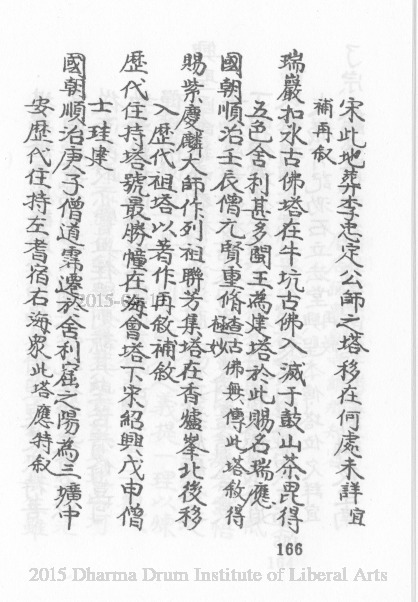 宋此地葬李忠定公師之塔移在何處未詳宜
補再敘
瑞巖扣氷古佛塔在牛坑古佛入滅于鼓山茶毘得
五色舍利甚多閩王為建塔於此賜名瑞應
國朝順治壬辰僧元賢重脩極妙古佛無傳此塔敘得
賜紫慶麟大師作列祖聯芳集塔在香爐峯北後移
入歷代祖塔以著作再敘補敘
歷代住持塔號最勝幢在海會塔下宋紹興戊申僧
士珪建
國朝順治庚子僧道霈遷於舍利窟之陽為三壙中
安歷代住持左耆宿右海眾此塔應特敘
166
2015 Dharma Drum Institute of Liberal Arts